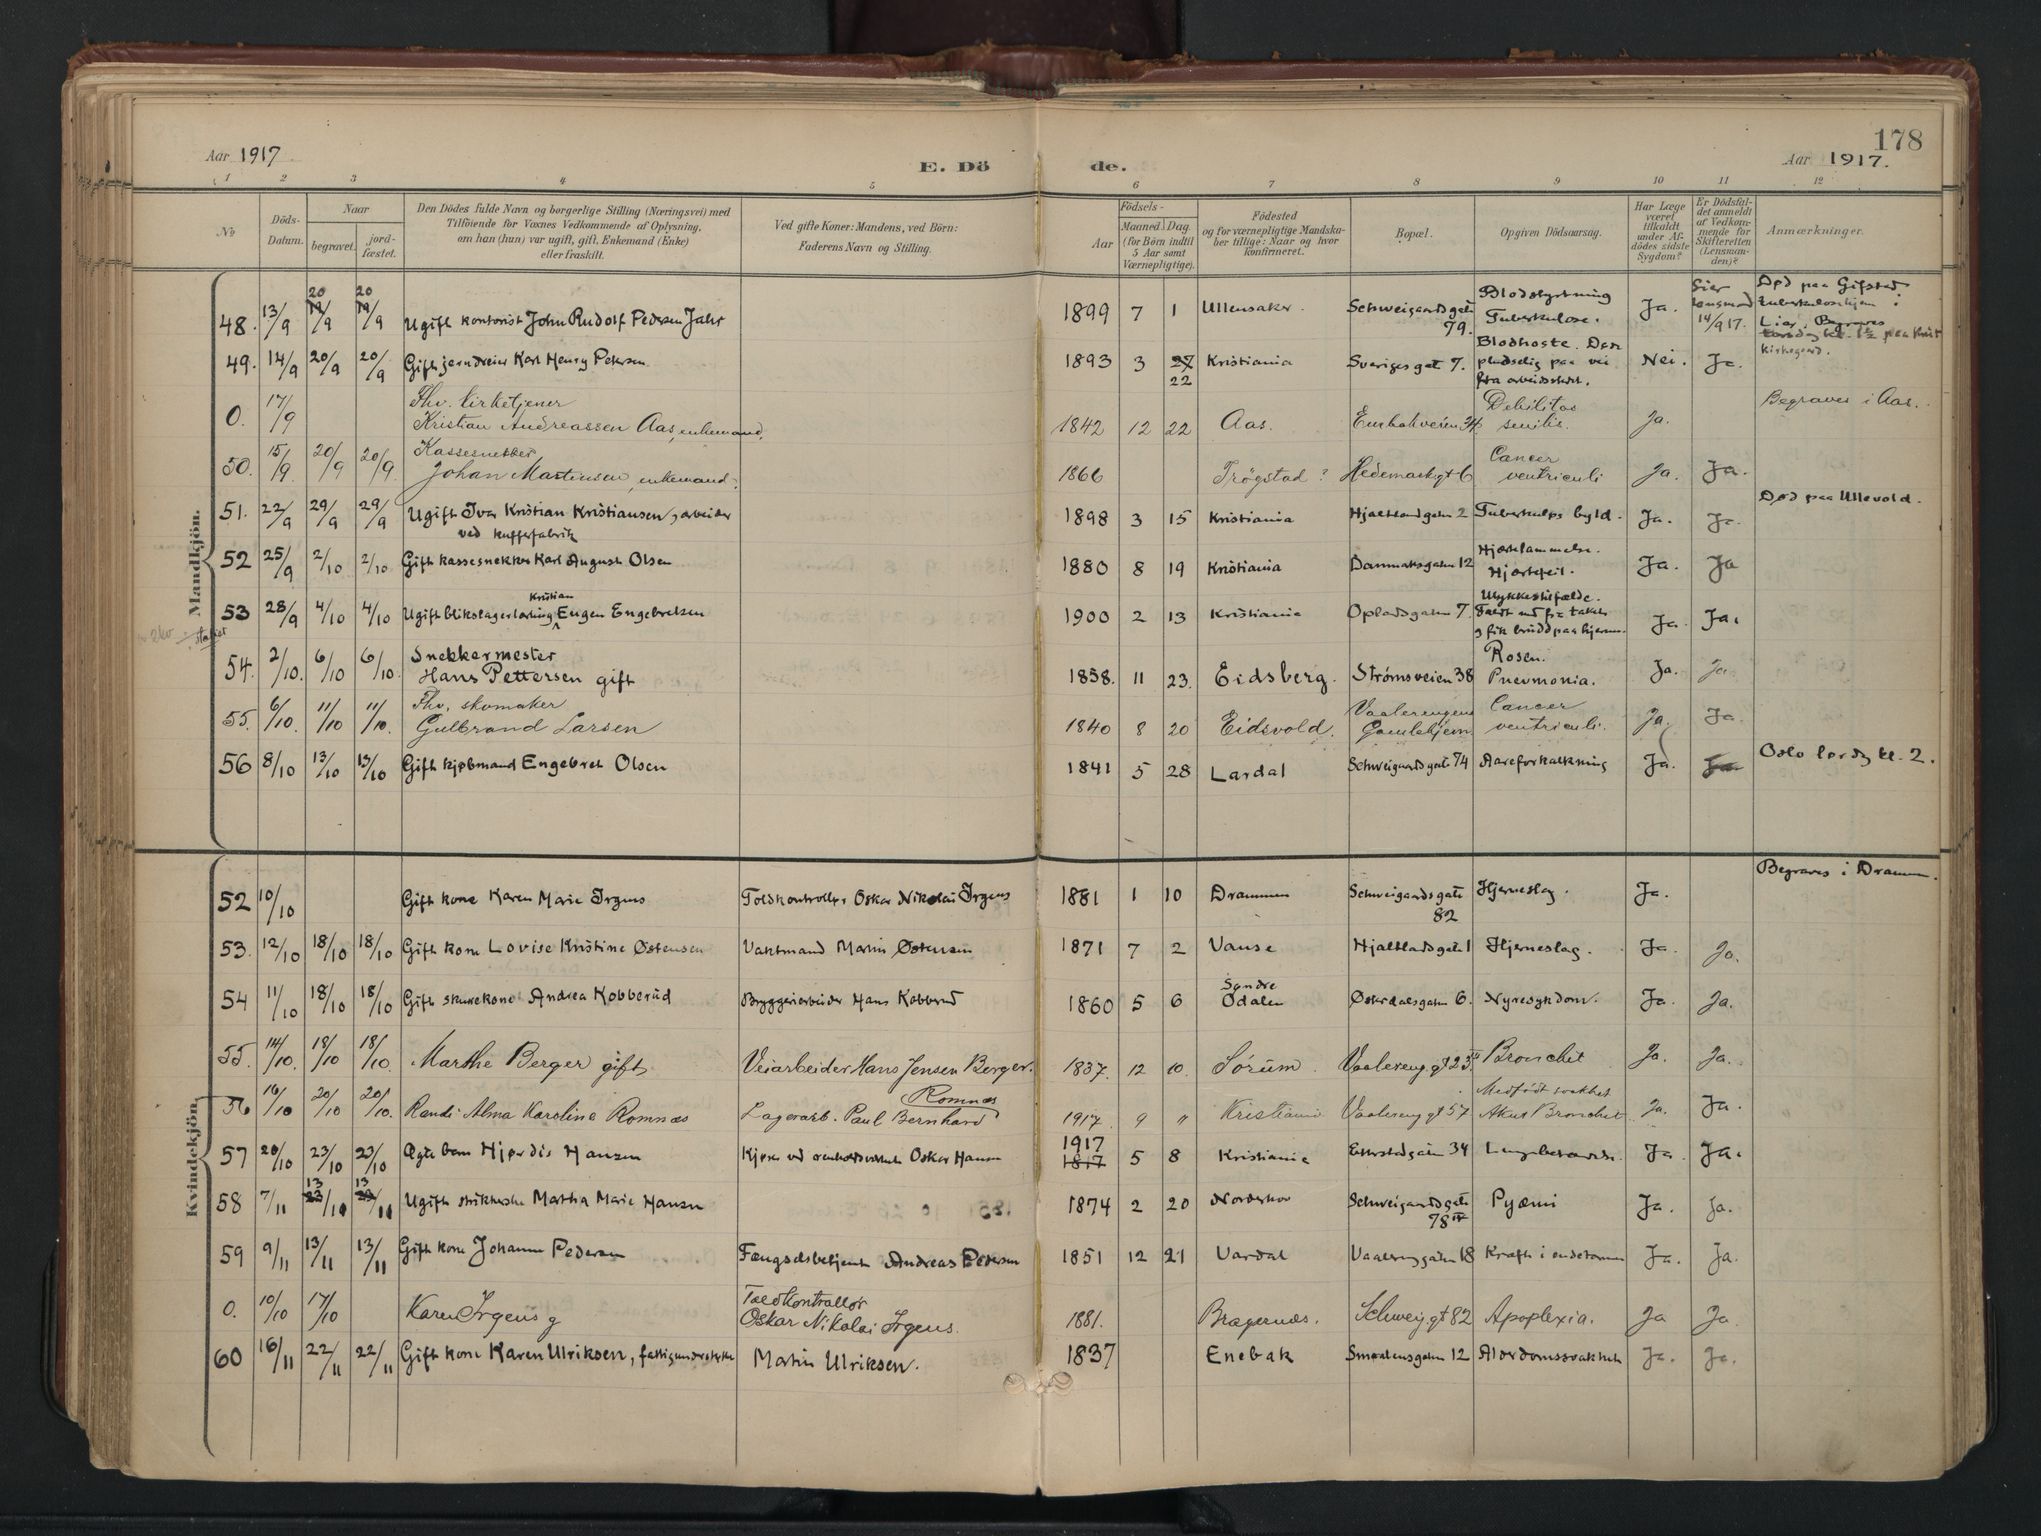 178
Aar 1917
E. Dö de.
Aar 1917.
1 2 3 4 5 6 7 8 9 10 11 12
№
Döds-Datum.
Naar
begravet.
jordfæstet.
Den Dödes fulde Navn og borgerlige Stilling (Næringsvei) med
Tilföiende for Voxnes Vedkommende af Oplysning,
om han (hun) var ugift, gift, Enkemand (Enke)
eller fraskilt.
Ved gifte Koner: Mandens, ved Börn:
Faderens Navn og Stilling.
Födsels-
Aar
Maaned. Dag.
(for Börn indtil
5 Aar samt
Værnepligtige).
Födested
og for værnepligtige Mandska-
ber tillige: Naar og hvor
konfirmeret.
Bopæl.
Opgiven Dödsaarsag.
Har Læge
været
tilkaldt
under Af-
dödes sidste
Sygdom?
Er Dödsfal-
det anmeldt
af Vedkom-
mende for
Skifteretten
(Lensman-
den)?
Anmærkninger.
Mandkjön.
48. 13/9 20/9 20/9 Ugift kontorist John Rudolf Pedersen Jahr 1899 7 1 Ullensaker Schweigaardsgate 79. Blodstyrtning Tuberkulose. Ja. Lier lensmand 14/9 17. Død paa Gifstad tuberkulosehjem i Lier. Begraves
kirkegaard.
49. 14/9 20/9 20/9 Gift jerndreier Karl Henry Petersen 1893 3 27 22 Kristiania Sverigesgat 7. Blodhoste. Døde pludselig paa vei fra arbeidsstedet. Nei. Ja.
0. 17/9 Fhv. kirketjener
Kristian Andreassen Aas, enkemand. 1842 12 22 Aas. 34 Debilitas senilis. Ja. Begraves i Aas.
50. 15/9 20/9 20/9 Kassesnekker
Johan Martinsen, enkemand. 1866 Trøgstad? Hedemarkgt 6 Cancer ventriculi Ja. Ja.
51. 22/9 29/9 29/9 Ugift Ivar Kristian Kristiansen, arbeider
ved kufferfabrik 1898 3 15 Kristiania Hjaltlandgaten 2 Tuberkuløs byld. Ja. Ja. Død paa Ullevold.
52 25/9 2/10 2/10 Gift kassesnekker Karl August Olsen 1880 8 19 Kristiania Danmarksgaten 12 Hjertelammelse. Hjertefeil. Ja. Ja
53 28/9 4/10 4/10 Ugift blikslagerlærling Kristian Eugen Engebretsen 1900 2 13 Kristiania Oplandsgaten 7. Ulykkestilfælde. Faldt ned fra taket og fik brudd paa hjernen. Ja. Ja.
54. 2/10. 6/10 6/10. Snekkermester
Hans Pettersen gift 1858. 11 23. Eidsberg. Strømsveien 38 Rosen. Pnevmonia. Ja. Ja.
55. 6/10. 11/10 11/10. Fhv. skomaker
Gulbrand Larsen 1840 8 20 Eidsvold. Vaalerengens Gamlehjem. Cancer ventriculi. Ja. Ja.
56 8/10 13/10 13/10 Gift kjøbmand Engebret Olsen 1841 5 28 Lardal Schweigaardsgate 74 Aareforkalkning Ja. Ja Oslo lørdg kl. 2.
Kvindekjön.
52 10/10 Gift kone Karen Marie Irgens Toldkontrollør Oskar Nikolai Irgens 1881 1 10 Drammen Schweigaardsgate 82 Hjerneslag. Ja. Begraves i Dramm.
53. 12/10 18/10 18/10 Gift kone Lovise Kristine Østensen Vaktmand Martin Østensen 1871 7 2 Vanse Hjaltlandsgate 1 Hjerneslag. Ja. Ja.
54 11/10 18/10 18/10 Gift skurekone Andrea Kobberud Bryggeriarbeider Hans Kobberud 1860 5 6 Søndre Odalen Østerdalsgaten 6. Nyresykdom. Ja. Ja.
55. 14/10. 18/10 18/10. Marthe Berger gift Veiarbeider Hans Jensen Berger. 1837. 12 10. Sørum. Vaalereng.gt 23 Bronchit Ja. Ja.
56 16/10 20/10 20/10. Randi Alma Karoline Romnæs Lagerarb. Paul Bernhard Romnæs 1917. 9 " Kristiania Vaalereng gt 57 Medfødt svakhet Akut Bronchit Ja. Ja.
57 20/10 23/10 23/10 Ægte barn Hjørdis Hansen Kjører ved renholdsverket Oskar Hansen 1917 1817 5 8 Kristiania Etterstadgaten 34 Lungebetændelse. Ja. Ja.
58 7/11 13/11 13/11 Ugift strikkerske Martha Marie Hansen 1874 2 20 Norderhov Schweigaardsgate 78 IV Pyæmi Ja. Ja.
59 9/11 13/11 13/11 Gift kone Johanne Pedersen Fængselsbetjent Andreas Pedersen 1851 12 21 Vardal Vaalerenggaten 18 Kræft i endetarmen Ja. Ja.
0. 10/10 17/10 Karen Irgens g Toldkontrollør
Oskar Nikolai Irgens. 1881. Bragernæs. Schweig.gt 82 Apoplexia. Ja Ja.
60 16/11 22/11 22/11 Gift kone Karen Ulriksen, fattigunderstyttet Martin Ulriksen. 1837 Enebak Smaalensgaten 12 Alderdomssvakhet Ja. Ja.